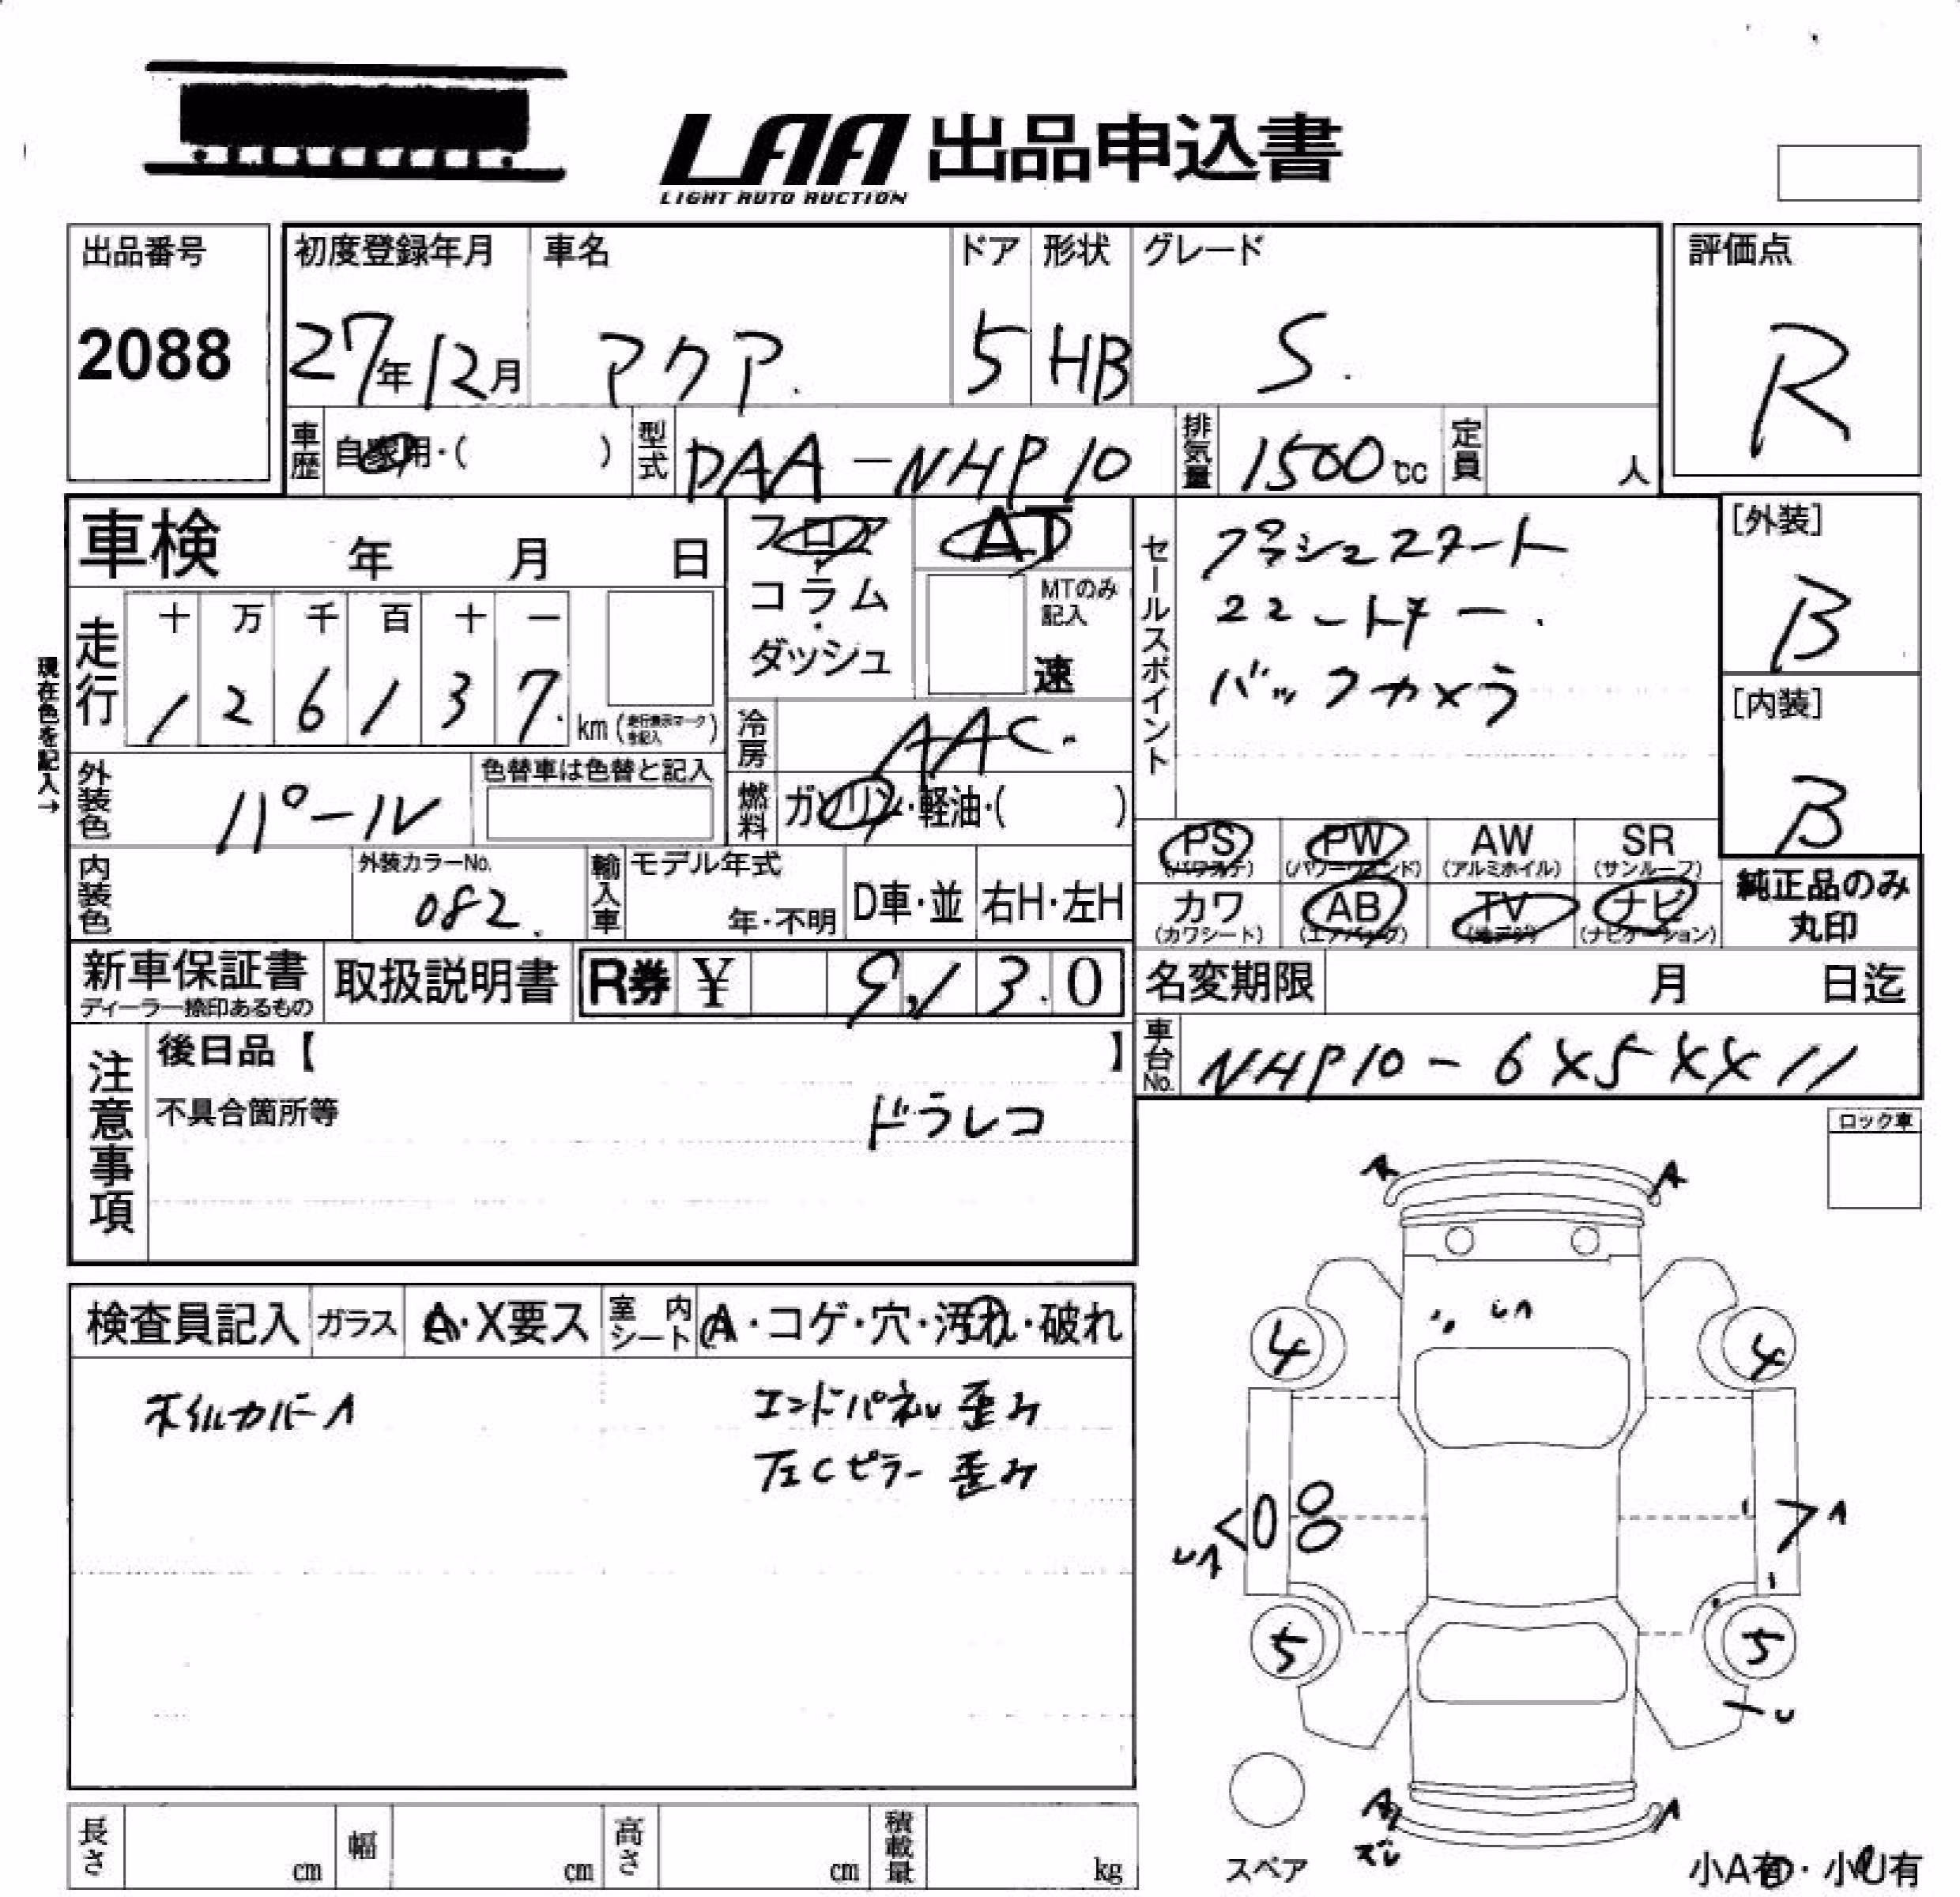 LAA 出品申込書
LIGHT AUTO AUCTION
出品番号
2088
初度登録年月
27年12月
車名
アクア.
ドア
5
形状
HB
グレード
S.
評価点
R
車歴
自家用・( )
型式
DAA-NHP10
排気量
1500cc
定員
人
車検 年 月 日
現在色を記入→
走行
十 万 千 百 十 一
1 2 6 1 3 7.
km (走行表示マークを記入)
フロア
コラム
ダッシュ
AT
MTのみ記入
速
冷房
AAC.
燃料
ガソリン・軽油・( )
外装色
パール
色替車は色替と記入
内装色
外装カラーNo.
082.
輸入車
モデル年式
年・不明
D車・並
右H・左H
セールスポイント
プッシュスタート
スマートキー.
バックカメラ
[外装]
B
[内装]
B
PS (パワステ)
PW (パワーウインド)
AW (アルミホイル)
SR (サンルーフ)
カワ (カワシート)
AB (エアバッグ)
TV (地デジ)
ナビ (ナビゲーション)
純正品のみ丸印
新車保証書
ディーラー捺印あるもの
取扱説明書
R券 ¥ 9,13.0
名変期限 月 日迄
車台No.
NHP10-6X5XX11
注意事項
後日品【 】
不具合箇所等
ドラレコ
ロック車
検査員記入
ガラス
A・X要ス
室内シート
A・コゲ・穴・汚れ・破れ
ホイルカバーA
エンドパネル歪み
左Cピラー歪み
A A
4 4
5 5
A
ズレ
スペア
小A有・小U有
長さ cm
幅 cm
高さ cm
積載量 kg